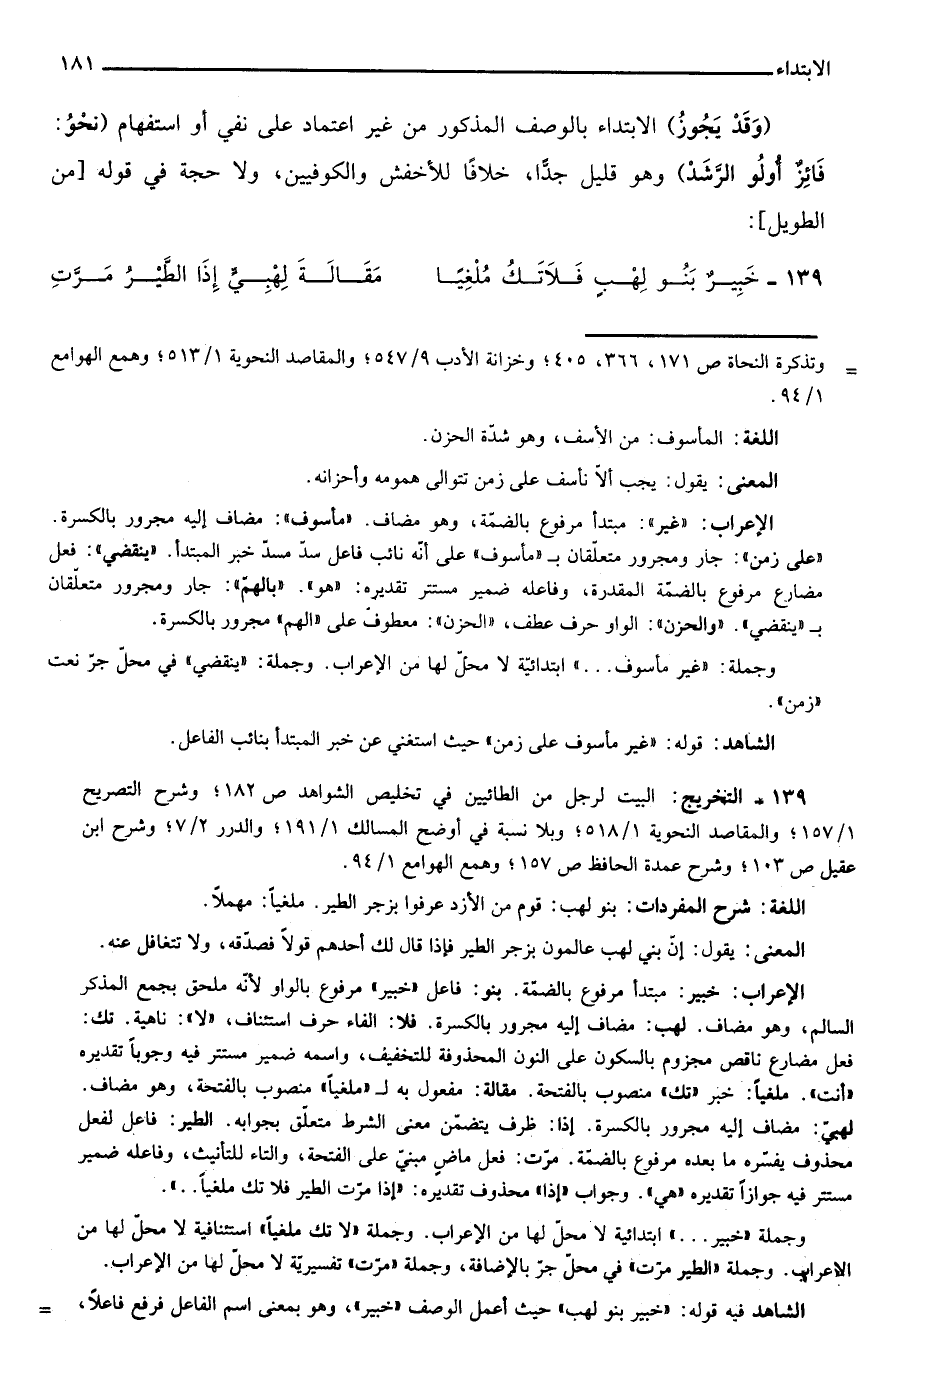 الابتداء ١٨١
(وَقَدْ يَجُوزُ) الابتداء بالوصف المذكور من غير اعتماد على نفي أو استفهام (نحْوُ:
فَائِزٌ أُولُو الرَّشَدْ) وهو قليل جدًّا، خلافًا للأخفش والكوفيين، ولا حجة في قوله [من
الطويل]:
١٣٩ - خَبِيرٌ بَنُو لِهْبٍ فَلَاتَكُ مُلْغِيًا مَقَالَةَ لِهْبِيٍّ إِذَا الطَّيْرُ مَرَّتِ
= وتذكرة النحاة ص ١٧١، ٣٦٦، ٤٠٥؛ وخزانة الأدب ٩/٥٤٧؛ والمقاصد النحوية ١/٥١٣؛ وهمع الهوامع
١/٩٤.
اللغة: المأسوف: من الأسف، وهو شدّة الحزن.
المعنى: يقول: يجب ألاّ نأسف على زمن تتوالى همومه وأحزانه.
الإعراب: «غير»: مبتدأ مرفوع بالضمّة، وهو مضاف. «مأسوف»: مضاف إليه مجرور بالكسرة.
«على زمن»: جار ومجرور متعلّقان بـ «مأسوف» على أنّه نائب فاعل سدّ مسدّ خبر المبتدأ. «ينقضي»: فعل
مضارع مرفوع بالضمّة المقدرة، وفاعله ضمير مستتر تقديره: «هو». «بالهمّ»: جار ومجرور متعلّقان
بـ «ينقضي». «والحزن»: الواو حرف عطف، «الحزن»: معطوف على «الهم» مجرور بالكسرة.
وجملة: «غير مأسوف...» ابتدائيّة لا محلّ لها من الإعراب. وجملة: «ينقضي» في محلّ جرّ نعت
«زمن».
الشاهد: قوله: «غير مأسوف على زمن» حيث استغني عن خبر المبتدأ بنائب الفاعل.
١٣٩ - التخريج: البيت لرجل من الطائيين في تخليص الشواهد ص ١٨٢؛ وشرح التصريح
١/١٥٧؛ والمقاصد النحوية ١/٥١٨؛ وبلا نسبة في أوضح المسالك ١/١٩١؛ والدرر ٢/٧؛ وشرح ابن
عقيل ص ١٠٣؛ وشرح عمدة الحافظ ص ١٥٧؛ وهمع الهوامع ١/٩٤.
اللغة: شرح المفردات: بنو لهب: قوم من الأزد عرفوا بزجر الطير. ملغياً: مهملاً.
المعنى: يقول: إنّ بني لهب عالمون بزجر الطير فإذا قال لك أحدهم قولاً فصدّقه، ولا تتغافل عنه.
الإعراب: خبير: مبتدأ مرفوع بالضمّة. بنو: فاعل «خبير» مرفوع بالواو لأنّه ملحق بجمع المذكر
السالم، وهو مضاف. لهب: مضاف إليه مجرور بالكسرة. فلا: الفاء حرف استئناف، «لا»: ناهية. تك:
فعل مضارع ناقص مجزوم بالسكون على النون المحذوفة للتخفيف، واسمه ضمير مستتر فيه وجوباً تقديره
«أنت». ملغياً: خبر «تك» منصوب بالفتحة. مقالة: مفعول به لـ «ملغياً» منصوب بالفتحة، وهو مضاف.
لهبيّ: مضاف إليه مجرور بالكسرة. إذا: ظرف يتضمّن معنى الشرط متعلّق بجوابه. الطير: فاعل لفعل
محذوف يفسّره ما بعده مرفوع بالضمّة. مرّت: فعل ماضٍ مبنيّ على الفتحة، والتاء للتأنيث، وفاعله ضمير
مستتر فيه جوازاً تقديره «هي». وجواب «إذا» محذوف تقديره: «إذا مرّت الطير فلا تك ملغياً..».
وجملة «خبير...» ابتدائية لا محلّ لها من الإعراب. وجملة «لا تك ملغياً» استئنافية لا محلّ لها من
الاعراب. وجملة «الطير مرّت» في محلّ جرّ بالإضافة، وجملة «مرّت» تفسيريّة لا محلّ لها من الإعراب.
الشاهد فيه قوله: «خبير بنو لهب» حيث أعمل الوصف «خبير»، وهو بمعنى اسم الفاعل فرفع فاعلاً، =